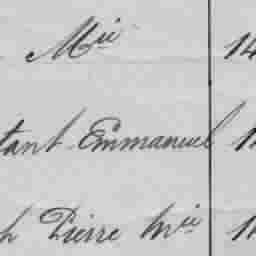 Mie 14
tant Emmanuel 1
h Pierre Mie 1